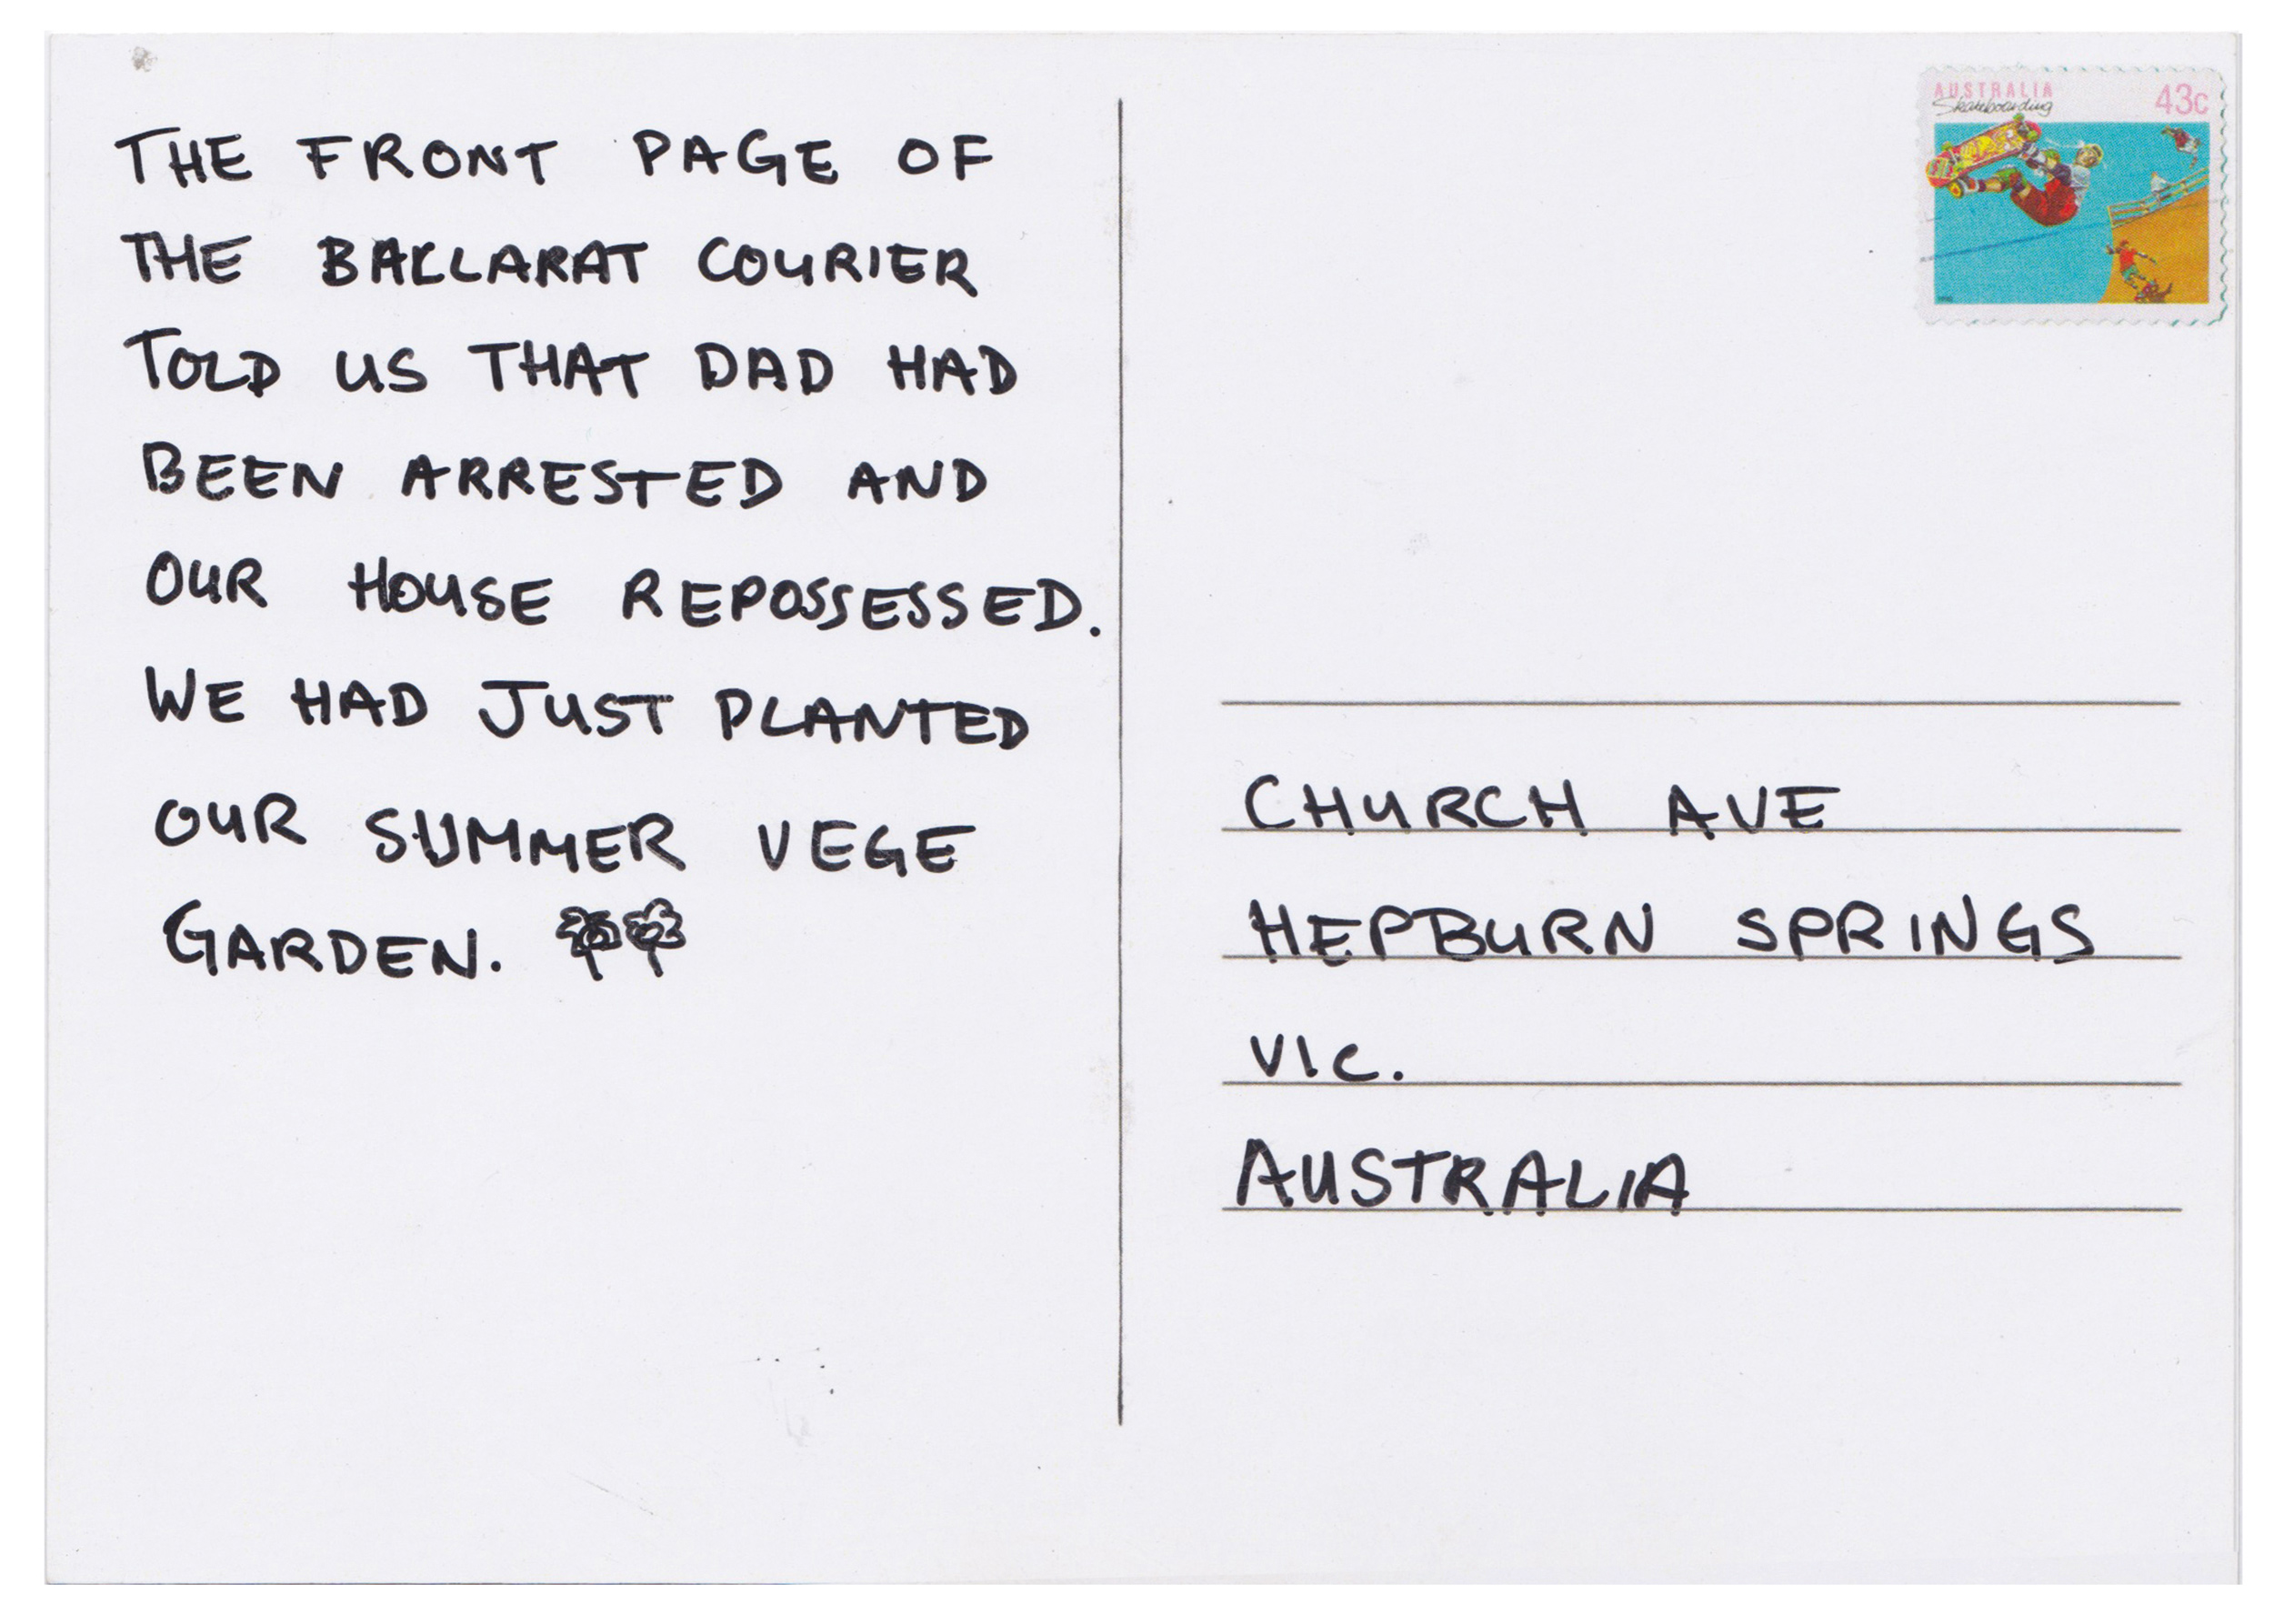 THE FRONT PAGE OF
THE BALLARAT COURIER
TOLD US THAT DAD HAD
BEEN ARRESTED AND
OUR HOUSE REPOSSESSED.
WE HAD JUST PLANTED
OUR SUMMER VEGE
GARDEN.
AUSTRALIA 43c
Skateboarding
CHURCH AVE
HEPBURN SPRINGS
VIC.
AUSTRALIA